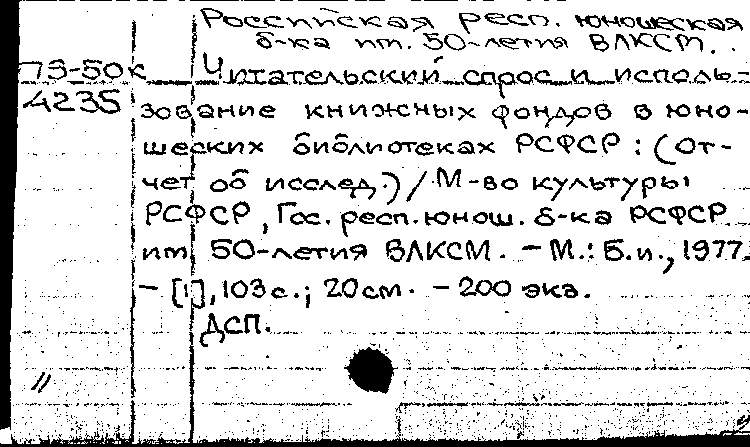 Российская респ. юношеская
б-ка им. 50-летия ВЛКСМ.
П9-50к Читательский спрос и исполь-
4235 зование книжных фондов в юно-
шеских библиотеках РСФСР: (От-
чет об исслед.) / М-во культуры
РСФСР, Гос. респ. юнош. б-ка РСФСР
им. 50-летия ВЛКСМ. - М.: Б.и., 1977.
- [1], 103 с.; 20 см. - 200 экз.
ДСП.